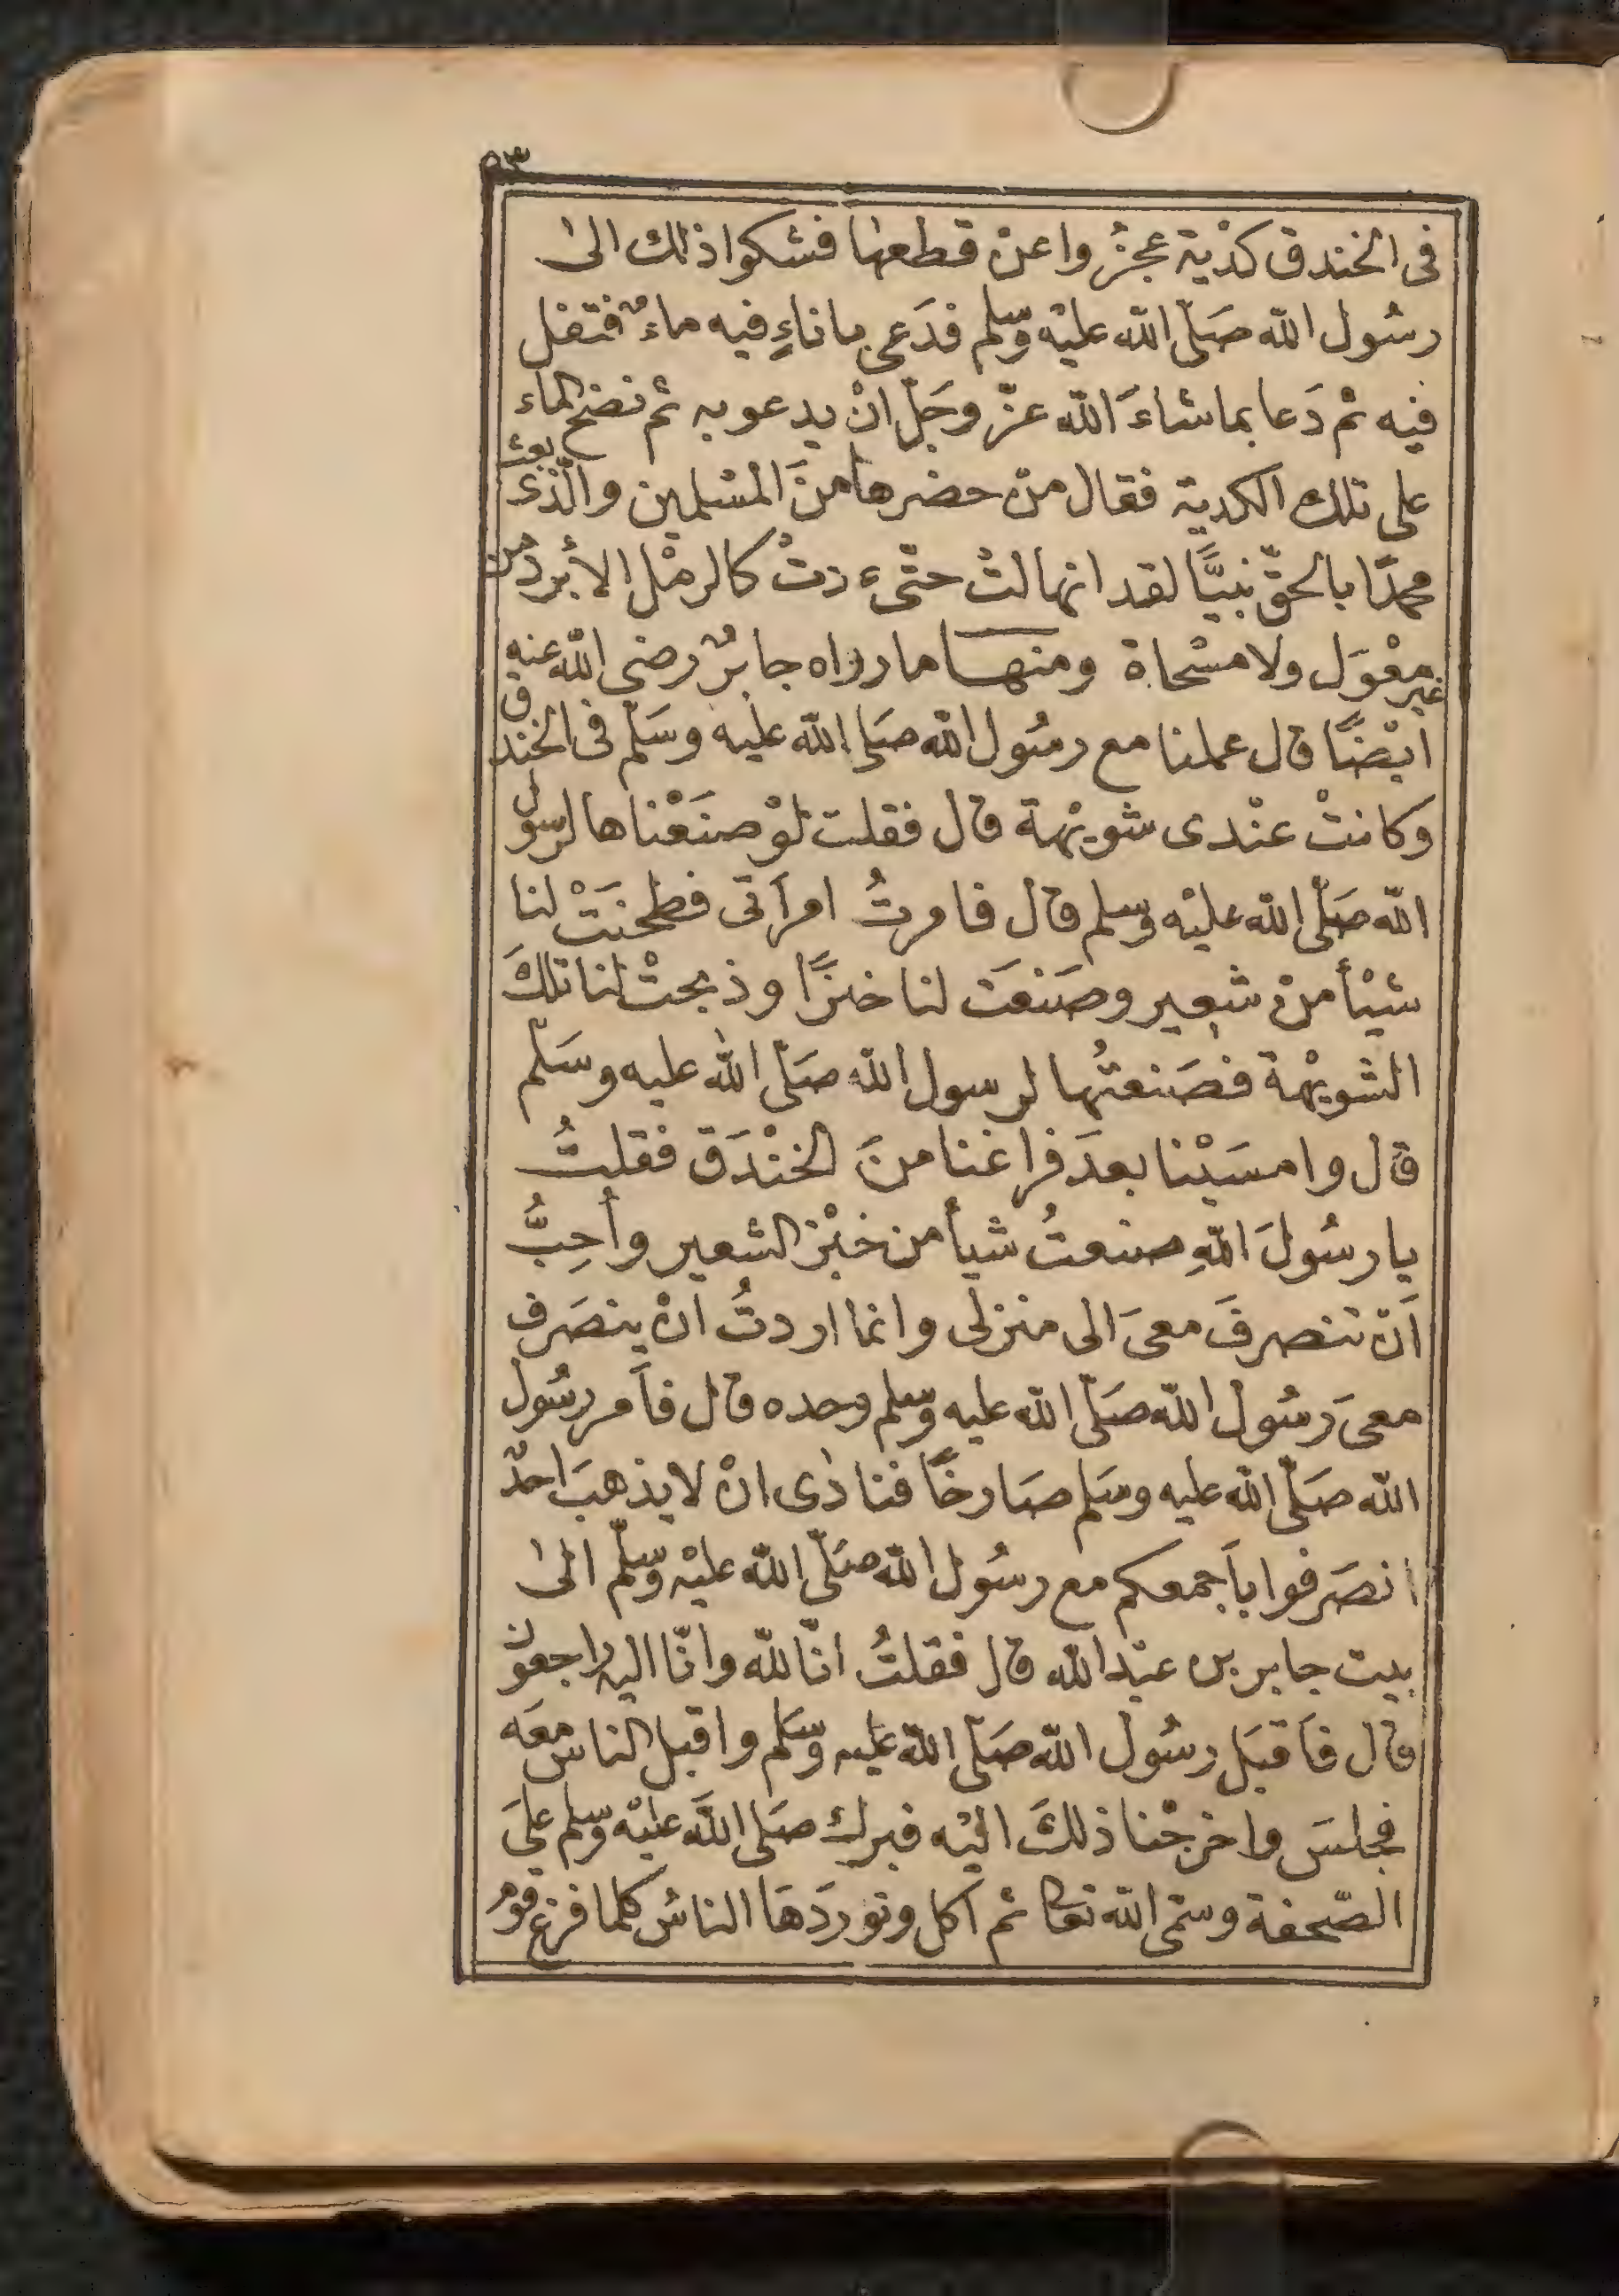 ٥٣
فى الخندق كدْية عجزُ واعنْ قطعها فشكوا ذلك الىٰ
رسُول الله صَلّى الله عليْه وسلم فدَعى باناءٍ فيه ماءٌ فتفل
فيه ثم دَعا بما شاءَ الله عزّ وجَلّ انْ يدعو به ثم نضح الماء
على تلك الكدية فقال منْ حضرها منَ المسْلمين والّذى بعث
محمدًا بالحقّ نبيًّا لقد انهالتْ حتّى دتْ كالرمْل الأبرد من
غير معْوَل ولا مسْحاة ومنها ما رواه جابرٌ رضى الله عنه
ايْضًا قال عملنا مع رسُول الله صَلى الله عليه وسَلّم فى الخندق
وكانتْ عنْدى شويْهة قال فقلت لوْ صنَعْناها لرسول
الله صَلّى الله عليْه وسلم قال فامرتُ امرأتى فطحنَتْ لنا
شيْأ منْ شعير وصَنعَت لنا خبزًا وذبحتْ لنا تلكَ
الشويْهة فصَنعتُها لرسول الله صَلّى الله عليه وسَلّم
قال وامسَيْنا بعدَ فراغنا منَ الخنْدَق فقلتُ
يا رسُولَ اللهِ صنعتُ شيأ من خبْز الشعير وأحِبُّ
اَنْ تنصرفَ معىَ الى منزلى وانما اردتُ انْ ينصَرف
معىَ رسُول الله صَلّى الله عليه وسلم وحده قال فأَمر رسُول
الله صَلّى الله عليه وسَلم صَارخًا فنادٰى انْ لا يذهبَ احدٌ
انصَرفوا بأَجمعكم مع رسُول الله صَلّى الله عليْه وسلّم الىٰ
بيت جابر بن عبْد الله قال فقلتُ انّا لله وانّا اليه راجعون
قال فأَقبَل رسُول الله صَلّى الله عليه وسَلم واقبل الناس معَه
فجلسَ واخرجْنا ذلكَ اليْه فبرك صَلى اللَّه عليْه وسلم علىَ
الصّحفة وسمّى الله تعالى ثم اكل وتورَدَهَا الناسُ كلما فرغ قومٌ